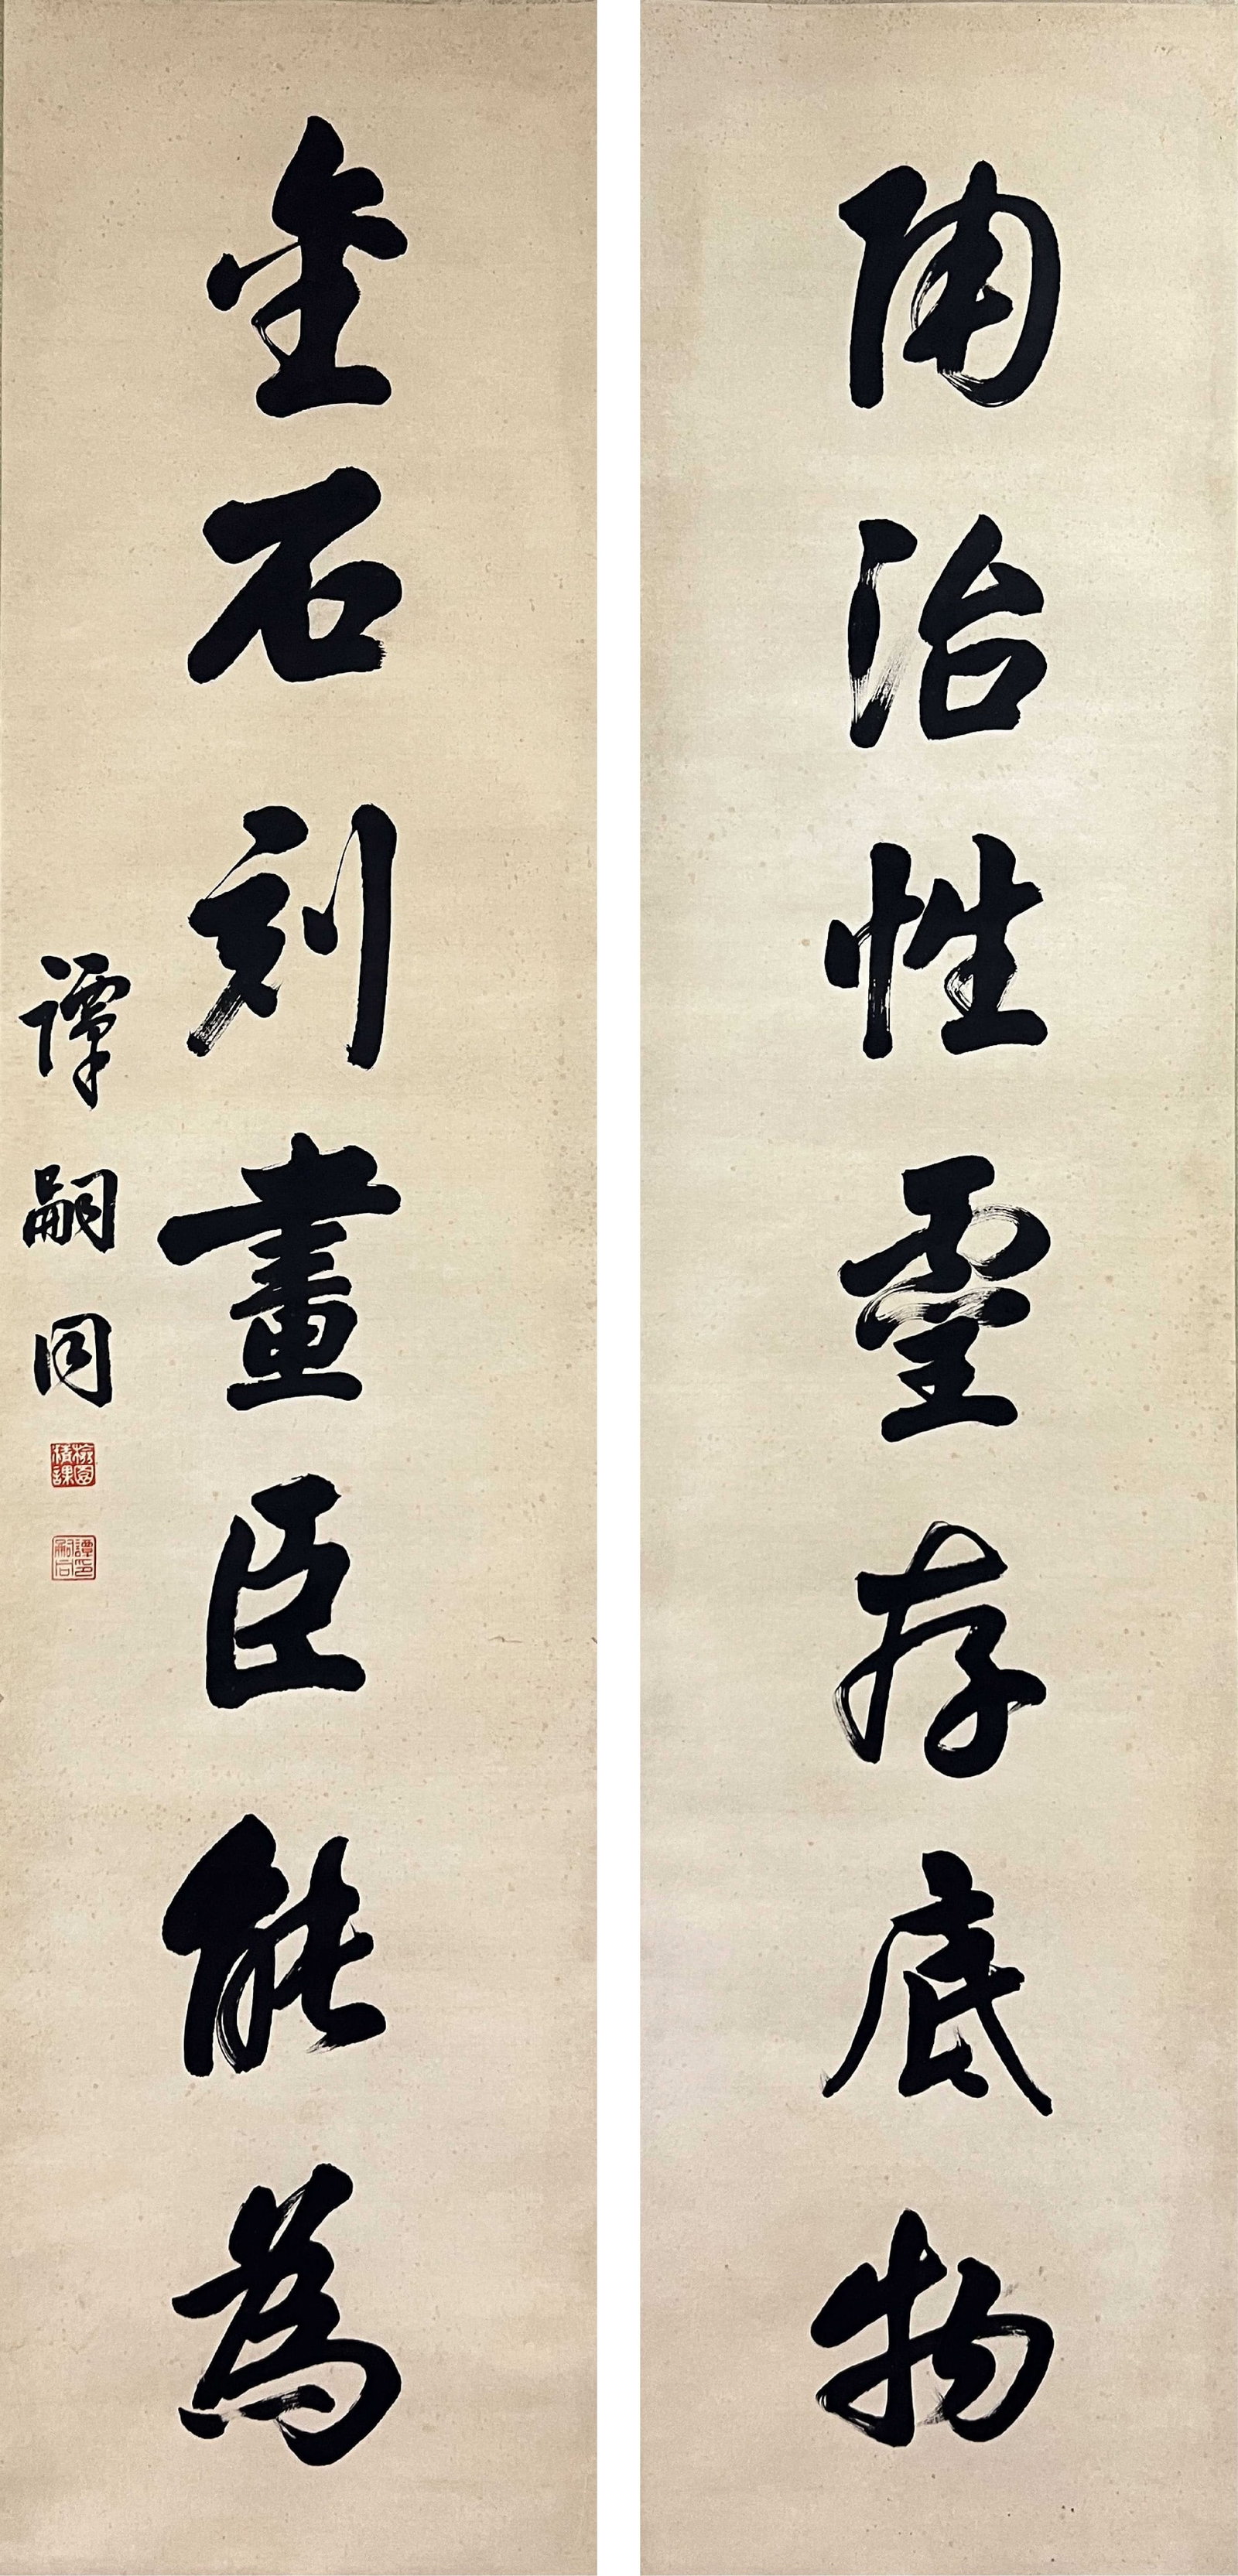 陶冶性靈存底物
金石刻畫臣能為
譚嗣同
譚嗣同印